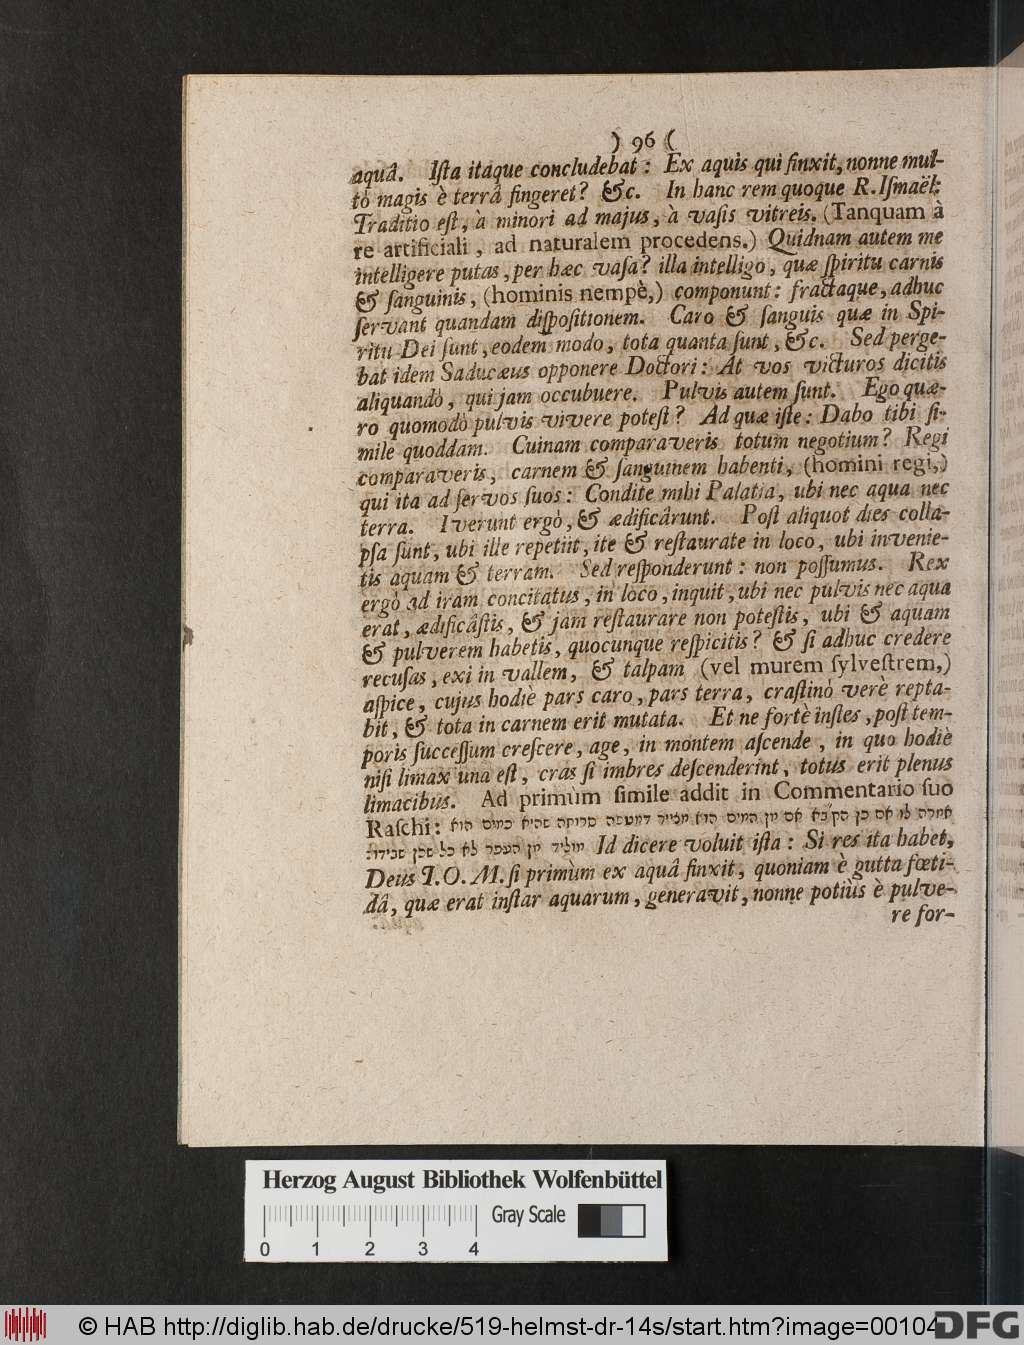 ) 96 (
aquâ. Iſta itaque concludebat: Ex aquis qui finxit, nonne mul-
tò magis è terrâ fingeret? &c. In hanc rem quoque R. Iſmaël:
Traditio eſt, à minori ad majus, à vaſis vitreis. (Tanquam à
re artificiali, ad naturalem procedens.) Quidnam autem me
intelligere putas, per hæc vaſa? illa intelligo, quæ ſpiritu carnis
& ſanguinis, (hominis nempè,) componunt: fractaque, adhuc
ſervant quandam diſpoſitionem. Caro & ſanguis quæ in Spi-
ritu Dei ſunt, eodem modo, tota quanta ſunt, &c. Sed perge-
bat idem Saducæus opponere Doctori: At vos victuros dicitis
aliquandò, qui jam occubuere. Pulvis autem ſunt. Ego quæ-
ro quomodò pulvis vivere poteſt? Ad quæ iſte: Dabo tibi ſi-
mile quoddam. Cuinam comparaveris totum negotium? Regi
comparaveris, carnem & ſanguinem habenti, (homini regi,)
qui ita ad ſervos ſuos: Condite mihi Palatia, ubi nec aqua nec
terra. Iverunt ergò, & ædificârunt. Poſt aliquot dies colla-
pſa ſunt, ubi ille repetiit, ite & reſtaurate in loco, ubi invenie-
tis aquam & terram. Sed reſponderunt: non poſſumus. Rex
ergò ad iram concitatus, in loco, inquit, ubi nec pulvis nec aqua
erat, ædificâſtis, & jam reſtaurare non poteſtis, ubi & aquam
& pulverem habetis, quocunque reſpicitis? & ſi adhuc credere
recuſas, exi in vallem, & talpam (vel murem ſylveſtrem,)
aſpice, cujus hodiè pars caro, pars terra, craſtinò verè repta-
bit, & tota in carnem erit mutata. Et ne fortè inſtes, poſt tem-
poris ſucceſſum creſcere, age, in montem aſcende, in quo hodiè
niſi limax una eſt, cras ſi imbres deſcenderint, totus erit plenus
limacibus. Ad primùm ſimile addit in Commentario ſuo
Raſchi: אמרה לו אם כן הק״בה אם מן המים הוא מצייר דמטפה סרוחה שהיא כמים הוא
מוליד מן העפר לא כל שכן שבידו: Id dicere voluit iſta: Si res ita habet,
Deus T. O. M. ſi primùm ex aquâ finxit, quoniam è gutta fœti-
dâ, quæ erat inſtar aquarum, generavit, nonne potiùs è pulve-
re for-
Herzog August Bibliothek Wolfenbüttel
Gray Scale
0 1 2 3 4
© HAB http://diglib.hab.de/drucke/519-helmst-dr-14s/start.htm?image=00104
DFG